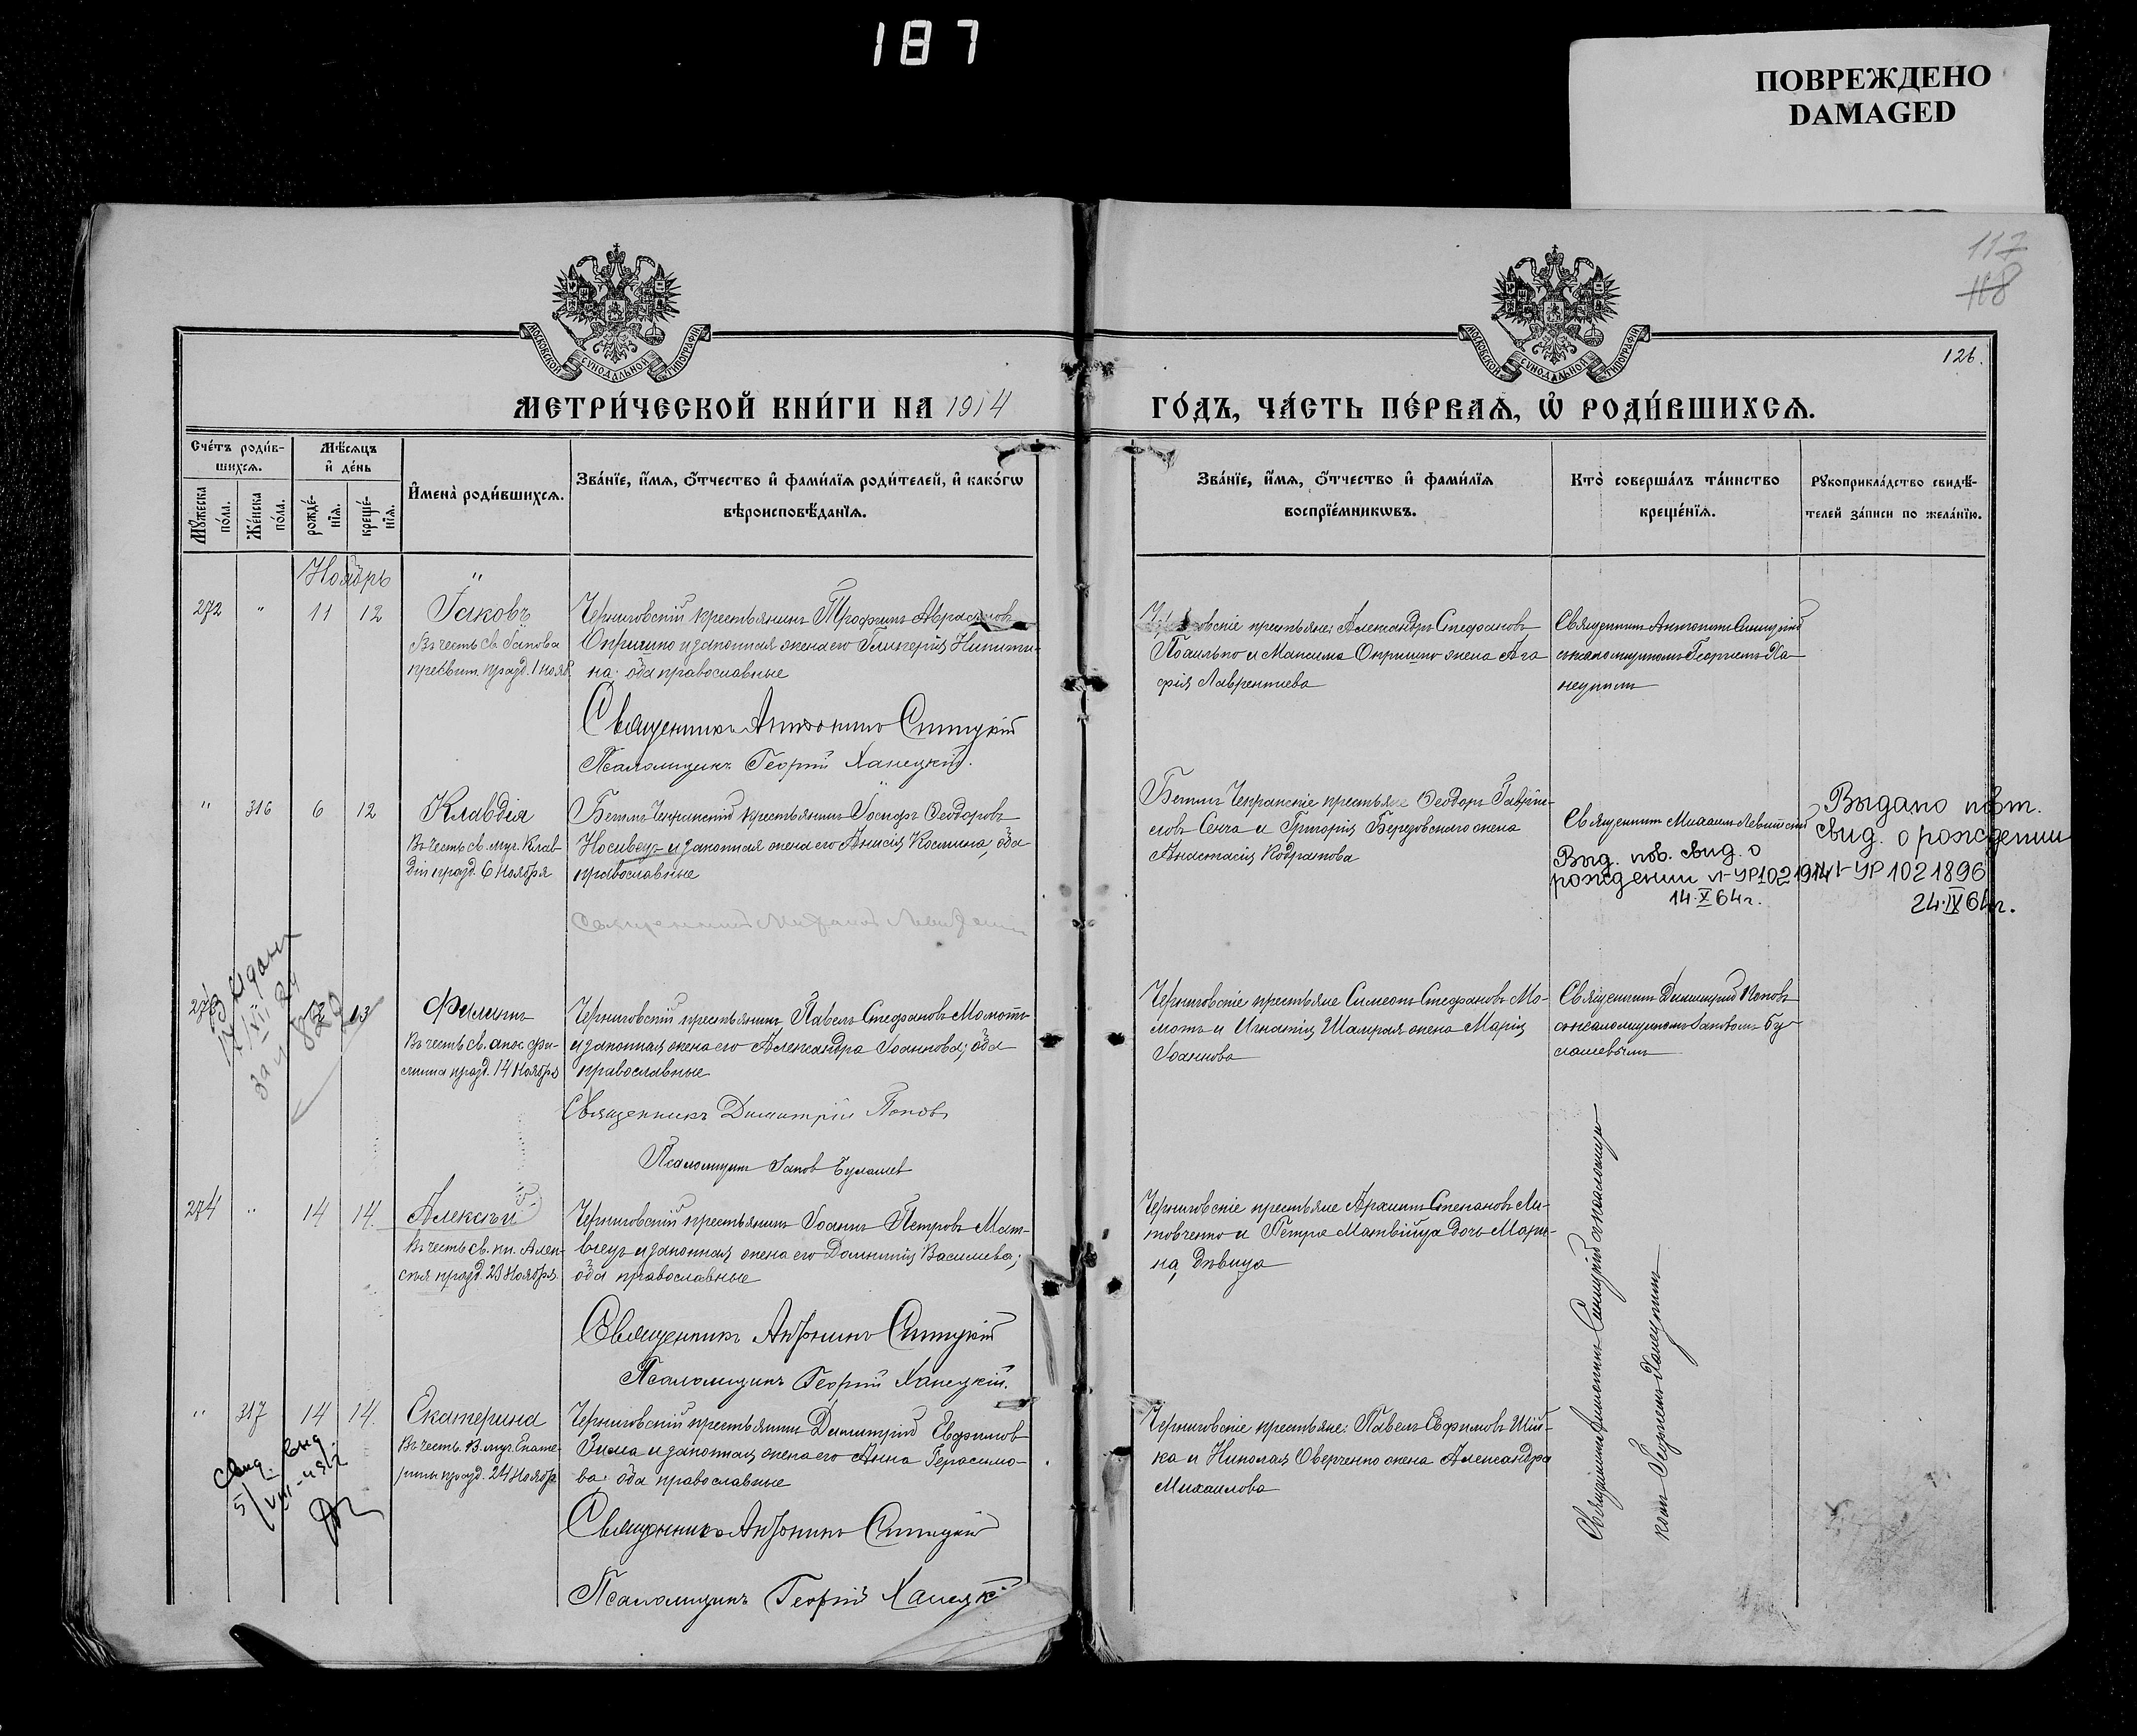 187
ПОВРЕЖДЕНО
DAMAGED
117
108
126.
МОСКОВСКОЙ СѴНОДАЛЬНОЙ ТИПОГРАФІИ
МОСКОВСКОЙ СѴНОДАЛЬНОЙ ТИПОГРАФІИ
МЕТРИ́ЧЕСКОЙ КНИ́ГИ НА 1914
ГО́ДЪ, ЧА́СТЬ ПЕ́РВАѦ, Ѡ҆ РОДИ́ВШИХСѦ.
Сче́тъ роди́в-
шихсѧ.
Мѣ́сѧцъ
и҆ де́нь
Мꙋ́жеска
по́ла.
Же́нска
по́ла.
рожде́-
нїѧ.
креще́-
нїѧ.
И҆мена̀ роди́вшихсѧ.
Зва́нїе, и҆́мѧ, ѻ҆́тчество и҆ фами́лїѧ роди́телей, и҆ како́гѡ
вѣроисповѣ́данїѧ.
Зва́нїе, и҆́мѧ, ѻ҆́тчество и҆ фами́лїѧ
воспрїе́мникѡвъ.
Кто̀ соверша́лъ та́инство
креще́нїѧ.
Рꙋкоприкла́дство свидѣ́-
телей за́писи по жела́нїю.
Ноябрь "
272 " 11 12 Іаковъ
Въ честь св. Іакова
празд. 1 нояб.
Черниговскій крестьянинъ Трофимъ
Опришко и законная жена его Гликерія Никити-
на; оба православные
Священникъ Антонинъ Синицкій
Псаломщикъ Георгій Ханецкій.
крестьяне: Александръ Стефановъ
и Максима Опришко жена Ага-
фія Лаврентиева
Священникъ Антонинъ Синицкій
съ псаломщикомъ Георгіемъ Ха-
нецкимъ
" 316 6 12 Клавдія
Въ честь св. муч. Клав-
діи празд. 6 Ноября
крестьянинъ Іосифъ Ѳеодоровъ
Носивецъ и законная жена его Анисія Космина, оба
православные
Священникъ Михаилъ Левитскій
крестьяне Ѳеодоръ Гаврии-
ловъ Сенча и Григорія Березовскаго жена
Анастасія Кодратова
Священникъ Михаилъ Левитскій
Выд. пов. свид. о
рождении №УР1021914
14.X 64г.
Выдано повт.
свид. о рождении
№УР 1021896
24.IX 64г.
273 " 12 13 Филиппъ
Въ честь св. апос. Фи-
липпа празд. 14 Ноября
Черниговскій крестьянинъ Павелъ Стефановъ Момотъ
и законная жена его Александра Іоаннова; оба
православные
Священникъ Димитрій Поповъ
Псаломщикъ Іаковъ Булашев
Черниговскіе крестьяне Симеонъ Стефановъ Мо-
мотъ и Игнатія Шамрая жена Марія
Іоаннова
Священникъ Димитрій Поповъ
съ псаломщикомъ Іаковомъ Бу-
лашевымъ
274 " 14 14. Алексѣй
Въ честь св. кн. Алек-
сѣя празд. 23 Ноября
Черниговскій крестьянинъ Іоаннъ Петровъ Мат-
вѣецъ и законная жена его Домникія Василиева;
оба православные
Священникъ Антонинъ Синицкій
Псаломщикъ Георгій Ханецкій.
Черниговскіе крестьяне Архипъ Степановъ Ли-
товченко и Петра Матвійца дочь Мари-
на, дѣвица
Священникъ Антонинъ Синицкій съ псаломщи-
комъ Георгіемъ Ханецкимъ
" 317 14 14. Екатерина
Въ честь В. муч. Екате-
рины празд. 24 Ноября
Черниговскій крестьянинъ Димитрій Евфимовъ
Зима и законная жена его Анна Герасимо-
ва; оба православные
Священникъ Антонинъ Синицкій
Псаломщикъ Георгій Ханецкій
Черниговскіе крестьяне: Павелъ Евфимовъ Шій-
ка и Николая Оверченко жена Александра
Михаилова